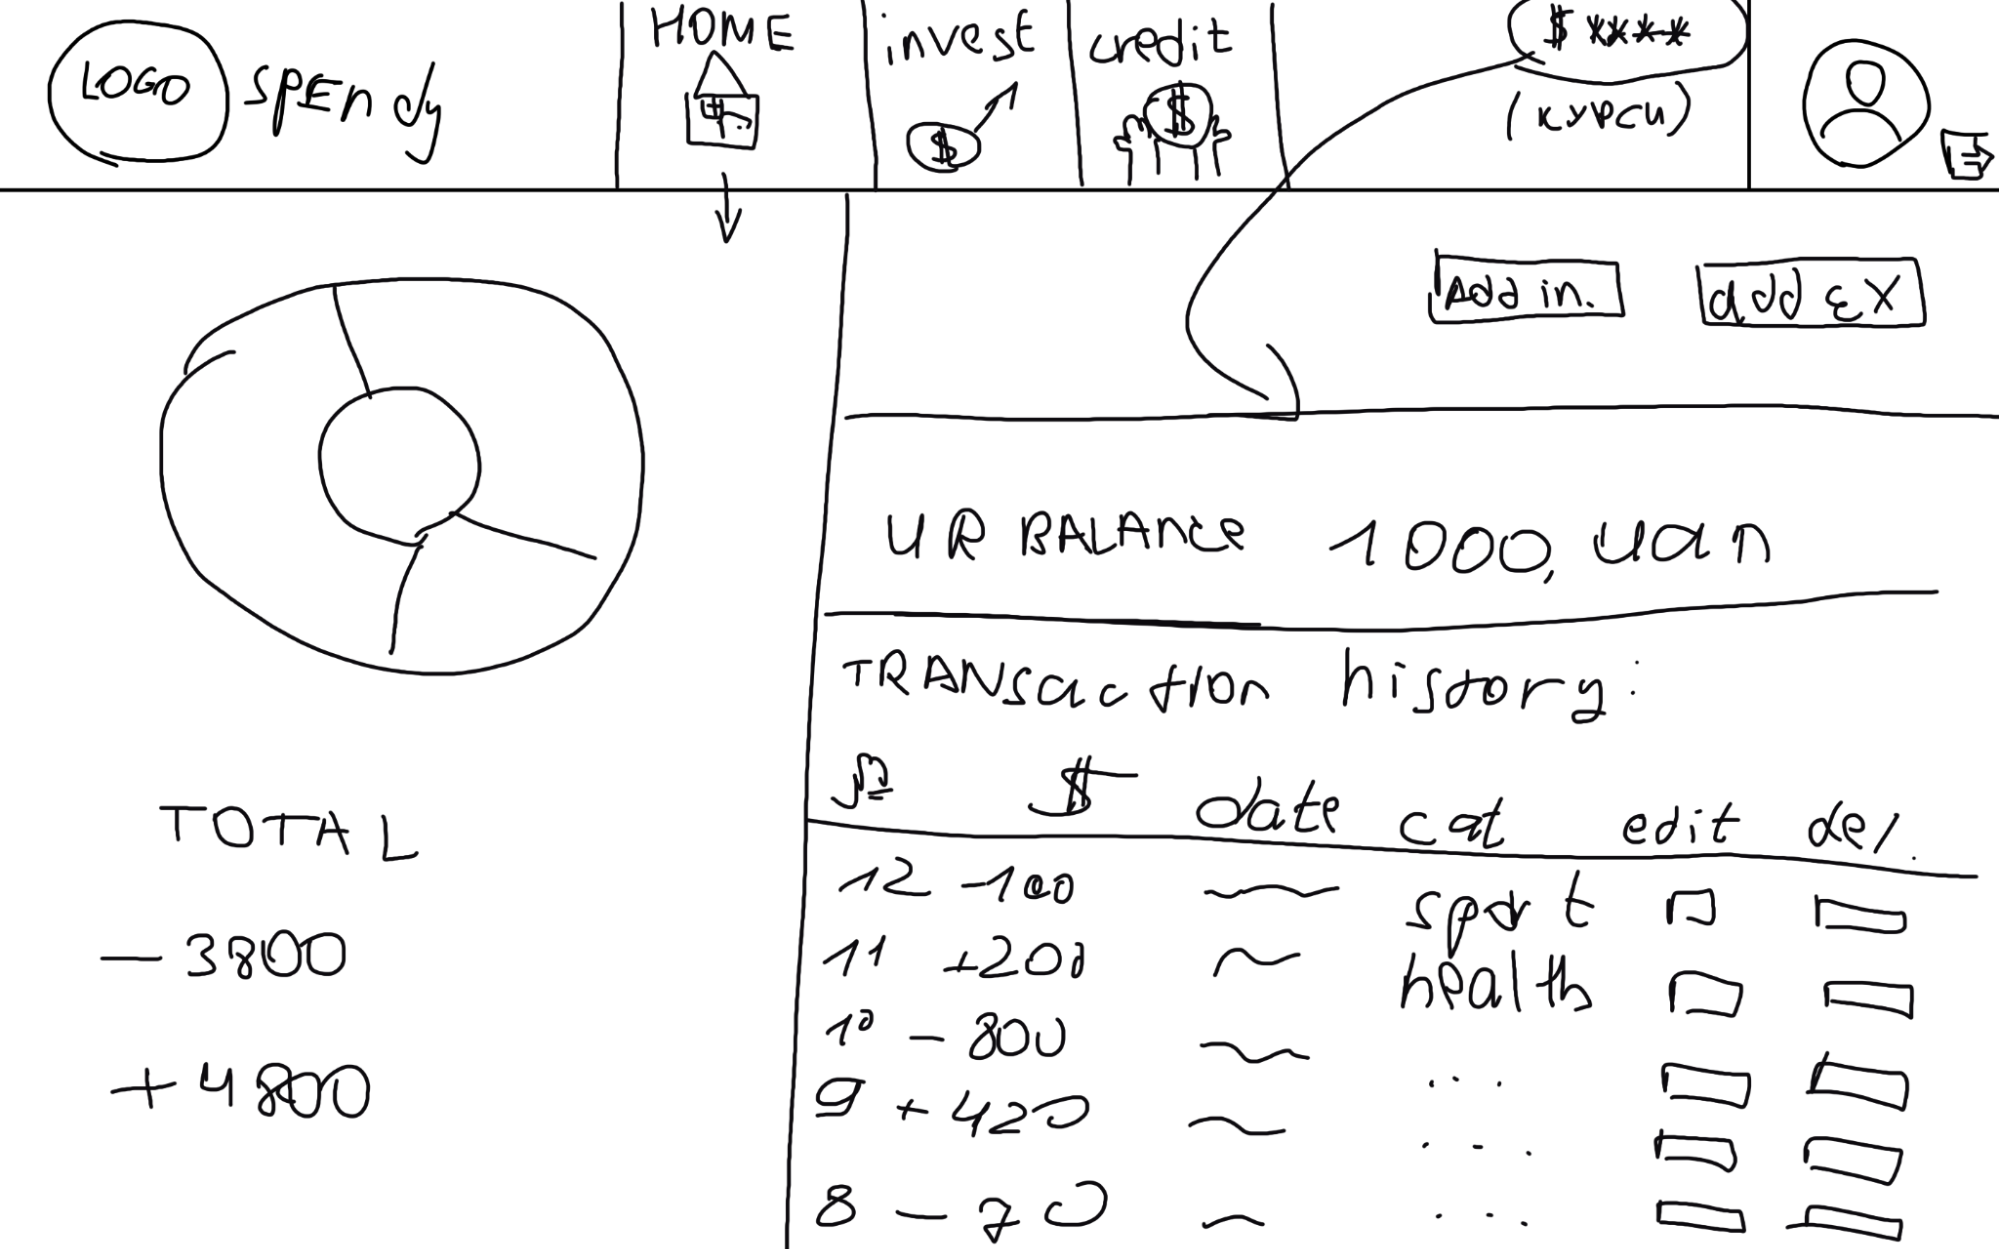 LOGO spendy
HOME
invest
$
credit
$
$ ****
(курси)
Add in.
add EX
UR BALANCE 1000, uan
TRANSaction history:
№ $ date cat edit del.
12 -100 sport
11 +200 health
10 - 800 ...
9 + 420 ...
8 - 70 ...
TOTAL
- 3800
+ 4800